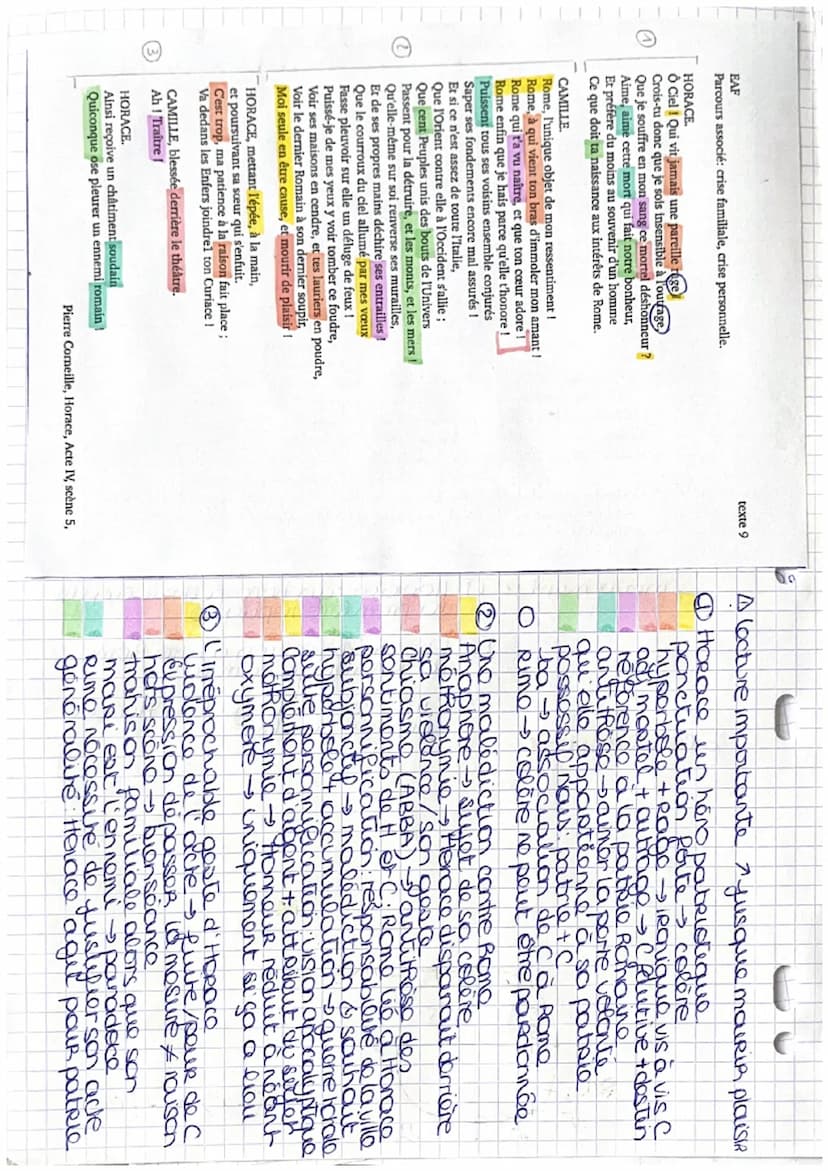 EAF
texte 9
Parcours associé: crise familiale, crise personnelle.
1
HORACE.
Ô Ciel ! Qui vit jamais une pareille rage !
Crois-tu donc que je sois insensible à l'outrage,
Que je souffre en mon sang ce mortel déshonneur ?
Aime, aime cette mort qui fait notre bonheur,
Et préfère du moins au souvenir d'un homme
Ce que doit ta naissance aux intérêts de Rome.
2
CAMILLE.
Rome, l'unique objet de mon ressentiment !
Rome, à qui vient ton bras d'immoler mon amant !
Rome qui t'a vu naître, et que ton cœur adore !
Rome enfin que je hais parce qu'elle t'honore !
Puissent tous ses voisins ensemble conjurés
Saper ses fondements encore mal assurés !
Et si ce n'est assez de toute l'Italie,
Que l'Orient contre elle à l'Occident s'allie ;
Que cent Peuples unis des bouts de l'Univers
Passent pour la détruire, et les monts, et les mers !
Qu'elle-même sur soi renverse ses murailles,
Et de ses propres mains déchire ses entrailles !
Que le courroux du ciel allumé par mes vœux
Fasse pleuvoir sur elle un déluge de feux !
Puissé-je de mes yeux y voir tomber ce foudre,
Voir ses maisons en cendre, et tes lauriers en poudre,
Voir le dernier Romain à son dernier soupir,
Moi seule en être cause, et mourir de plaisir !
3
HORACE, mettant l'épée, à la main,
et poursuivant sa sœur qui s'enfuit.
C'est trop, ma patience à la raison fait place ;
Va dedans les Enfers joindre1 ton Curiace !
CAMILLE, blessée derrière le théâtre.
Ah ! Traître !
HORACE.
Ainsi reçoive un châtiment soudain
Quiconque ose pleurer un ennemi romain !
Pierre Corneille, Horace, Acte IV, scène 5,
Δ lecture importante ↗ jusque mourir plaisir
1 Horace un héro patriotique
ponctuation forte → colère
hyperbole + Rage → ironique vis à vis C
adj mortel + outrage → C fautive + destin
référence à la patrie Romaine
antithèse → aimer la perte volontée
qu'elle appartienne à sa patrie
possessif Nous: patrie + C
ta → association de C à Rome
rime → colère ne peut être pardonnée
2 Une malédiction contre Rome
Anaphore → Sujet de sa colère
métonymie → Horace disparait derrière
sa violence / son geste
Chiasme (ABBA) → antithèse des
sentiments de H et C. Rome lié à Horace
personnification: responsabilité de la ville
Subjonctif → malédiction & souhait
hyperbole + accumulation → guerre totale
suite personnification: vision apocalyptique
Complément d'agent + attribut du sujet
métonymie → Honneur réduit à néant
oxymore → uniquement si ça a lieu
3 L'irréprochable geste d'Horace
violence de l'acte → fuite / peur de C
Expression dépasser la mesure ≠ raison
hors scène → bienséance
trahison familiale alors que son
mari est l'ennemi → paradoxe
rime nécessité de justifier son acte
généralité: Horace agit pour patrie